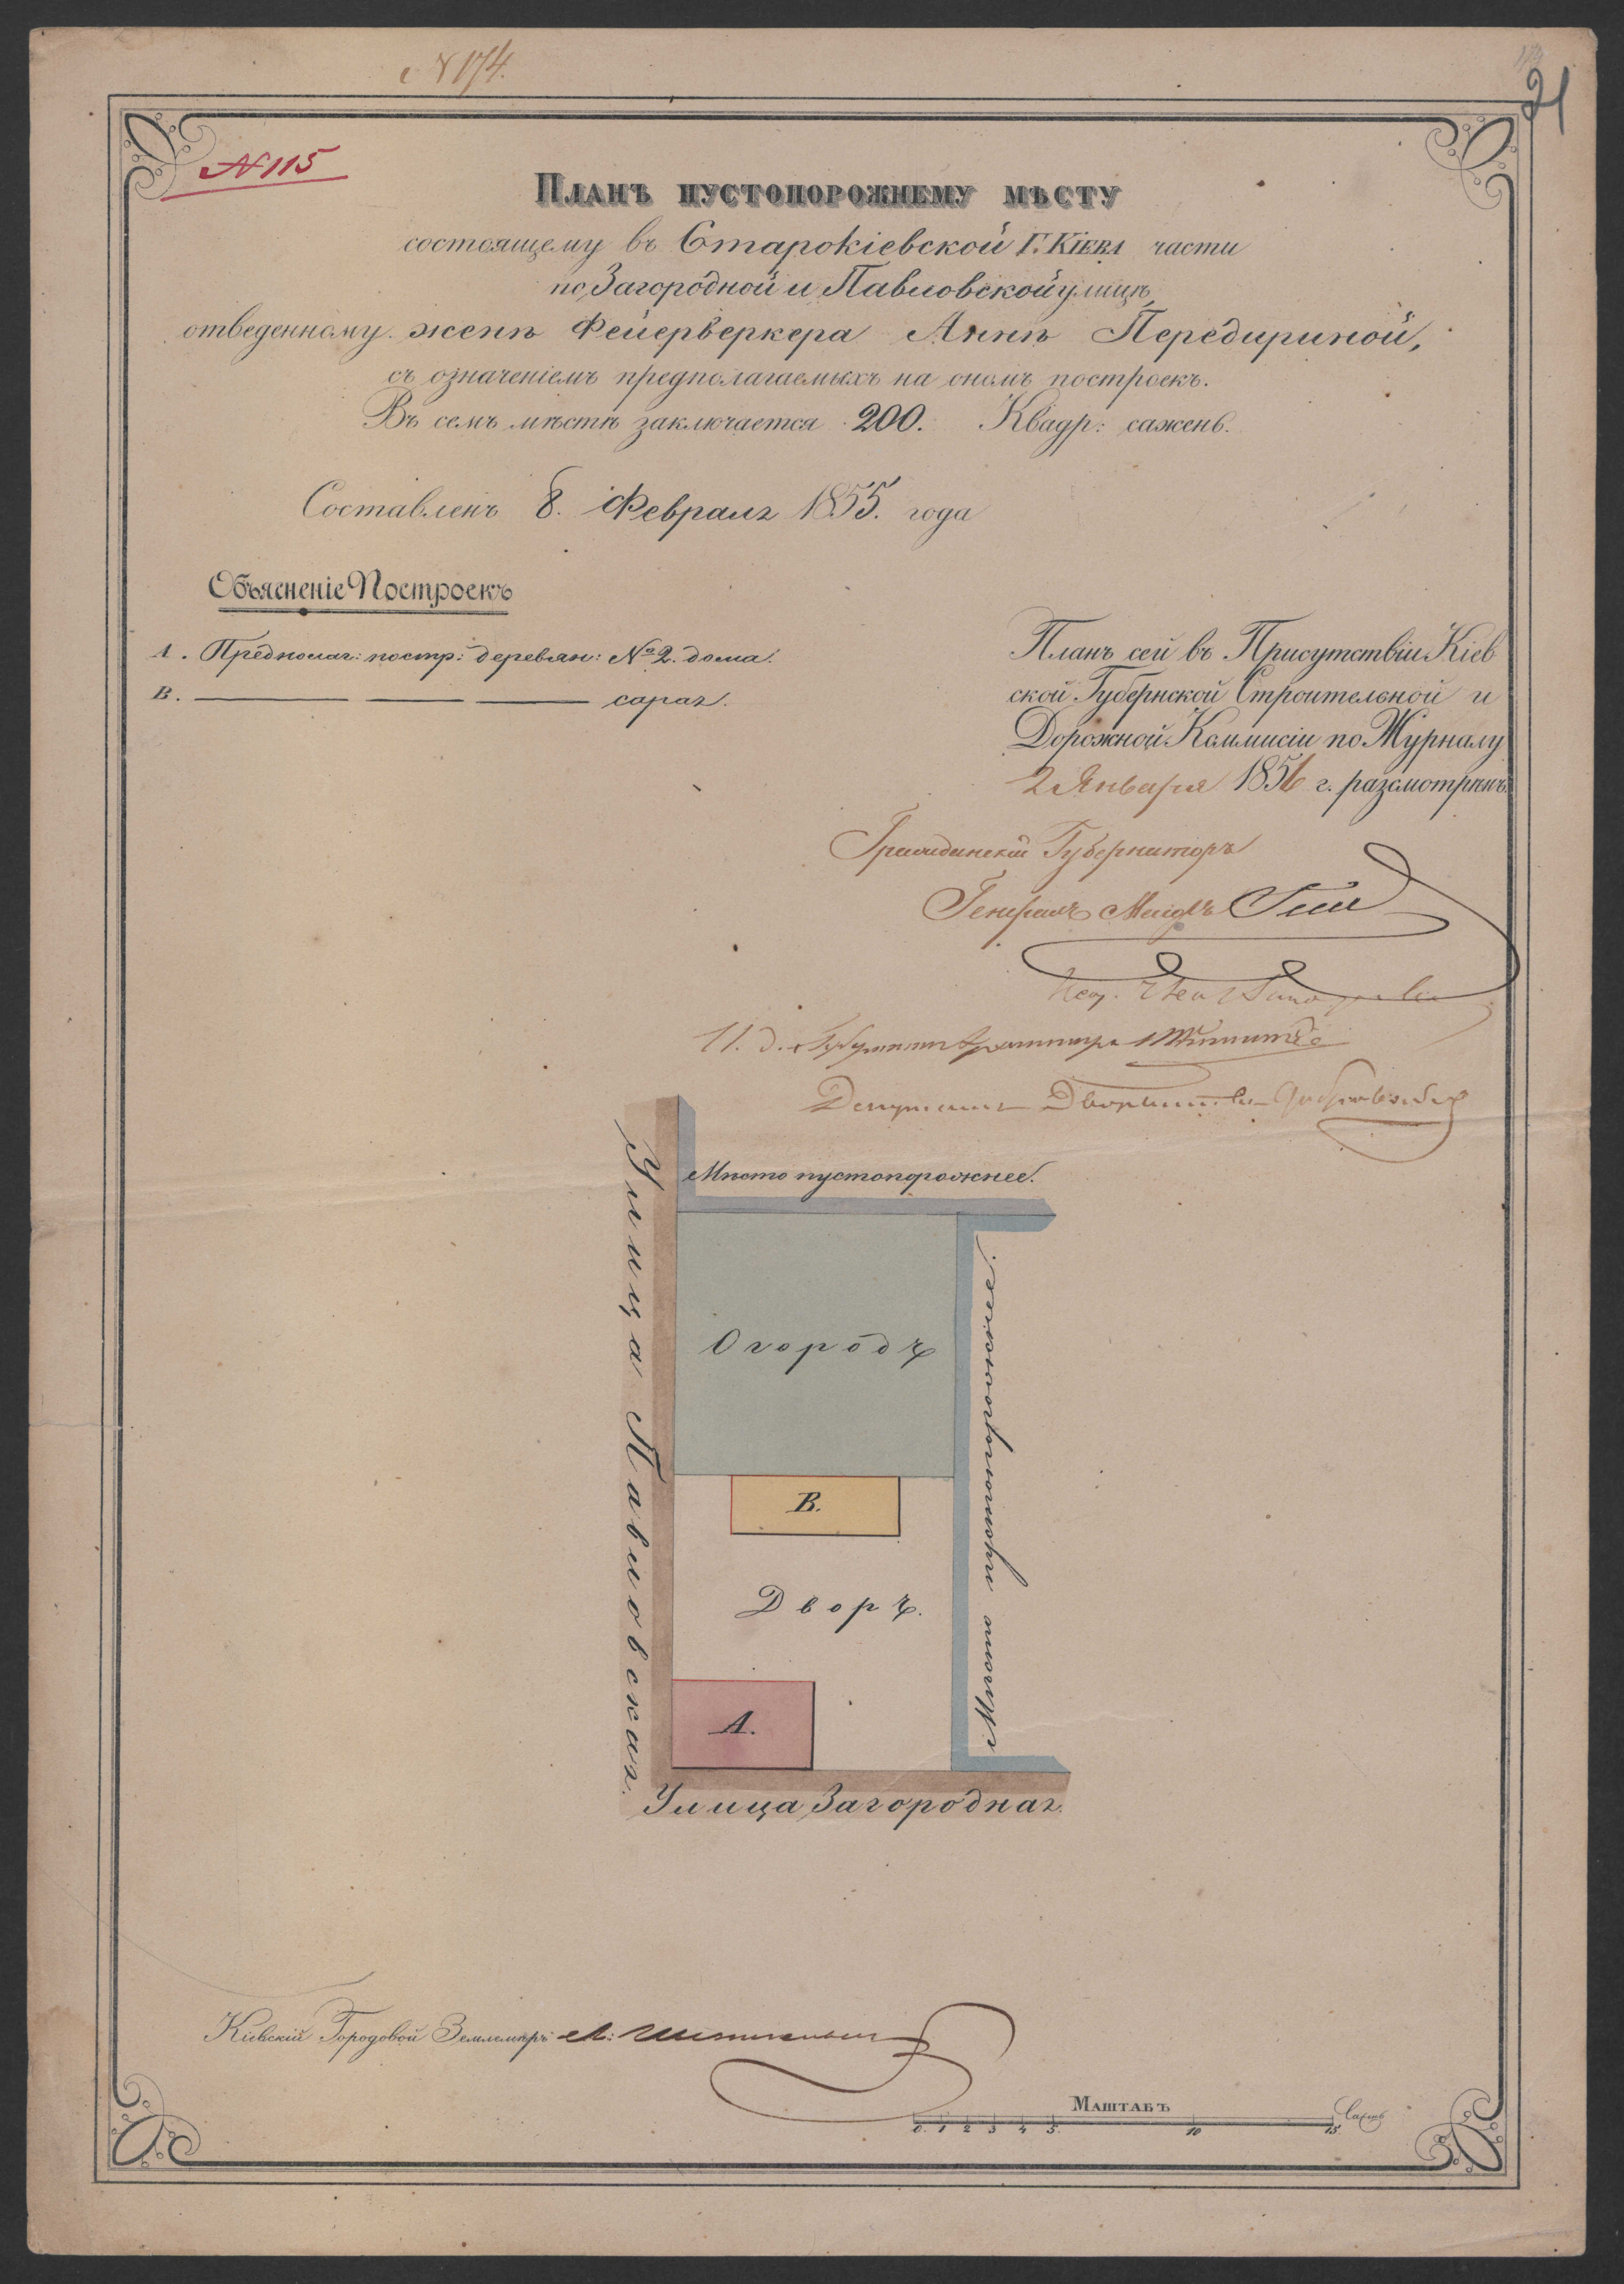 № 174.
21
№ 115
Планъ пустопорожнему мѣсту
состоящему въ Старокіевской Г. Кіева части
по Загородной и Павловской улицѣ,
отведенному женѣ Фейерверкера Аннѣ Передириной,
съ означеніемъ предполагаемыхъ на ономъ построекъ.
Въ семъ мѣстѣ заключается 200. Квадр: сажень.
Составленъ 8. Февраля 1855. года
Объясненіе Построекъ
А. Предполаг: постр: деревян: № 2. дома.
В. сарая.
Планъ сей въ Присутствіи Кіев
ской Губернской Строительной и
Дорожной Коммисіи по Журналу
2 Января 1856 г. разсмотрѣнъ
Гражданскій Губернаторъ
Генералъ Маіоръ
И. д. Губернск Архитектора
Депутатъ Дворянства
Мѣсто пустопорожнее.
Улица Павловская.
Огородъ
Мѣсто пустопорожнее.
В.
Дворъ.
А.
Улица Загородная.
Кіевскій Городовой Землемѣръ
Маштабъ
Сажень
0. 1 2 3 4 5. 10 15.